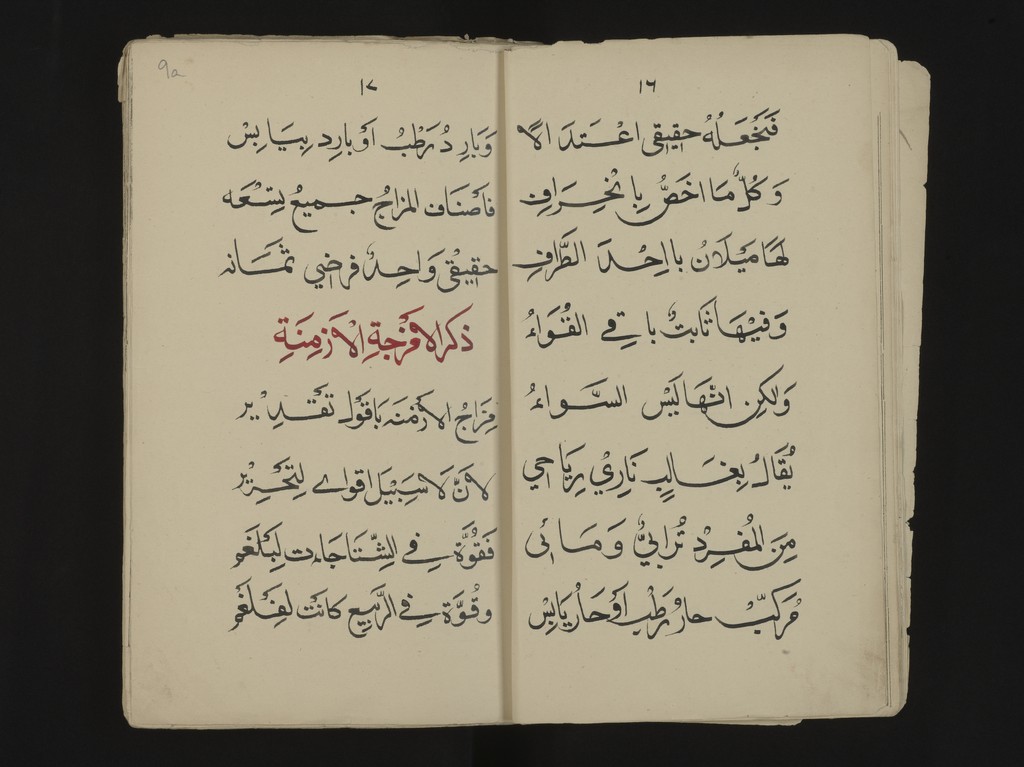 ١٦
فَنَجْعَلُهُ حقيقى اعْتَدَ الًا
وَكُلُّ مَا اخَصُّ بِا نْحِرَافِ
لهَا مَيَلَانُ بااِحْدَ الطَّرافِ
وَفيْهَا ثَابتٌ باقے القُوَاءُ
وَلكِن انهَا ليَسْ السَّواءُ
يُقَالُ بِغَالِبِ نَارِيْ رِيَاحي
مِنَ المُفرِدْ تُرابيٌّ وَمَائى
مُركَبّ حارُ رَطْبِ اَوْحَارْ يَابِسْ
9a
١٧
وَبَارِدُ رَطْبُ اَوْ بارِد بِيَابِسْ
فاَصْنَاف المزاجُ جميعُ تِسْعَه
حقيقى وَاحِدُ فرضي ثمَانه
ذكر الامْزجةِ الْاَزمِنَةِ
مِزَاجُ الاَزمنَه بَاقوْل تقْدِيْر
لاَنَّ لَا سَبِيْلَ اقواے لِتحَرِيْر
فَقُوَّة فِے الشِّتَا جَاءت لِبَلغَم
وقُوَّة فِے الرَّبيع كانَت لفِلغَم